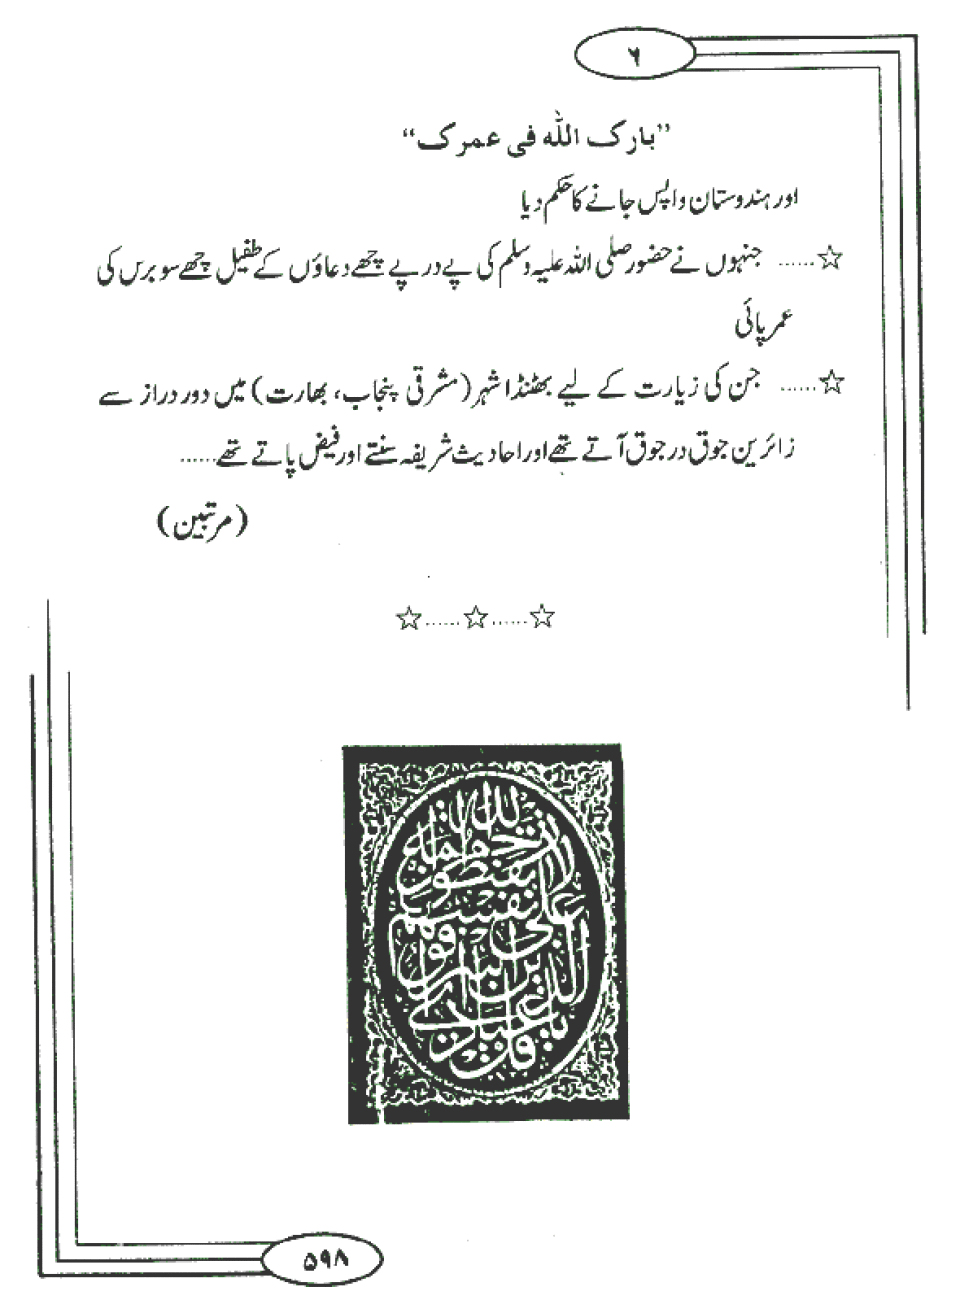 ۶
”بارک اللہ فی عمرک“
اور ہندوستان واپس جانے کا حکم دیا
☆...... جنہوں نے حضور صلی اللہ علیہ وسلم کی پے در پے چھے دعاؤں کے طفیل چھے سو برس کی
عمر پائی
☆...... جن کی زیارت کے لیے بھٹنڈا شہر (مشرقی پنجاب، بھارت) میں دور دراز سے
زائرین جوق در جوق آتے تھے اور احادیث شریفہ سنتے اور فیض پاتے تھے......
(مرتبین)
☆......☆......☆
قل يا عبادي الذين أسرفوا على أنفسهم لا تقنطوا من رحمة الله
۵۹۸